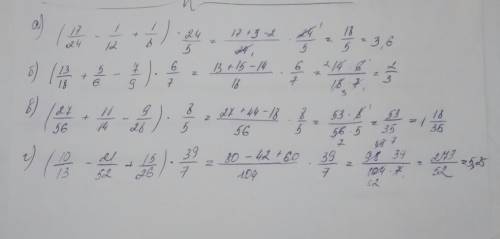 а) (17/24 - 1/12 + 1/8) · 24/5 = (17+3-2)/24 · 24/5 = 18/5 = 3,6
б) (13/18 + 5/6 - 7/9) · 6/7 = (13+15-14)/18 · 6/7 = 14·6/18·7 = 2/3
в) (27/56 + 11/14 - 9/28) · 8/5 = (27+44-18)/56 · 8/5 = 53·8/56·5 = 53/35 = 1 18/35
г) (10/13 - 21/52 + 15/26) · 39/7 = (80-42+60)/104 · 39/7 = 98 39/104·7 = 273/52 = 5,25